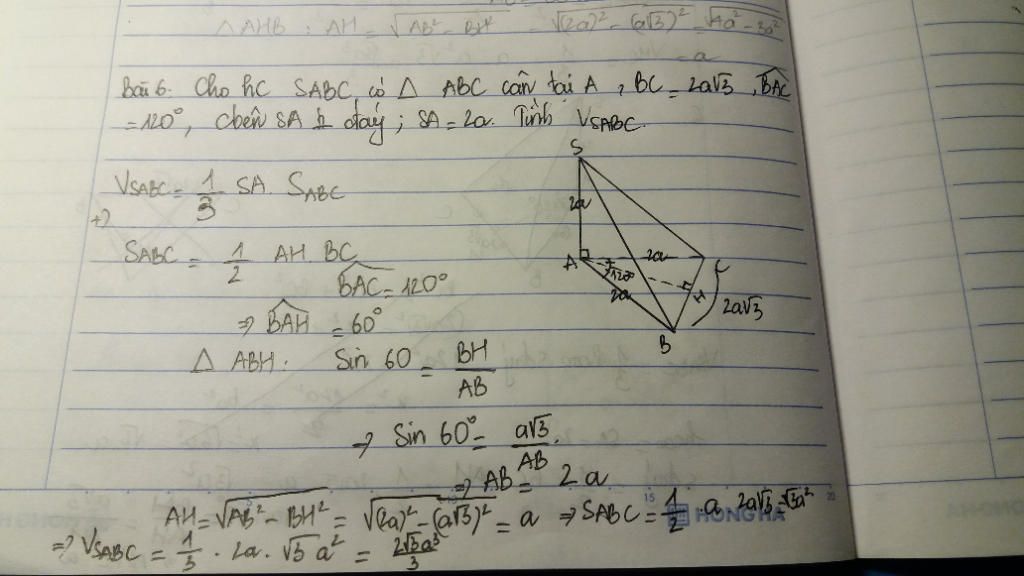 △ AHB : AH = √(AB² - BH²) = √((2a)² - (a√3)²) = √(4a² - 3a²)
= a
Bài 6. Cho hc SABC có △ ABC cân tại A, BC = 2a√3, B̂AC
= 120°, cbên SA ⊥ đáy; SA = 2a. Tính V_SABC.
V_SABC = 1/3 SA. S_ABC
+)
S_ABC = 1/2 AH. BC
B̂AC = 120°
⇒ B̂AH = 60°
△ ABH: Sin 60 = BH/AB
⇒ Sin 60° = a√3/AB.
⇒ AB = 2a
AH = √(AB² - BH²) = √((2a)² - (a√3)²) = a ⇒ S_ABC = 1/2 a 2a√3 = √3a²
⇒ V_SABC = 1/3 . 2a . √3 a² = 2√3a³/3
S
2a
A
2a
120°
2a
C
H
2a√3
B
15
20
HONG HA